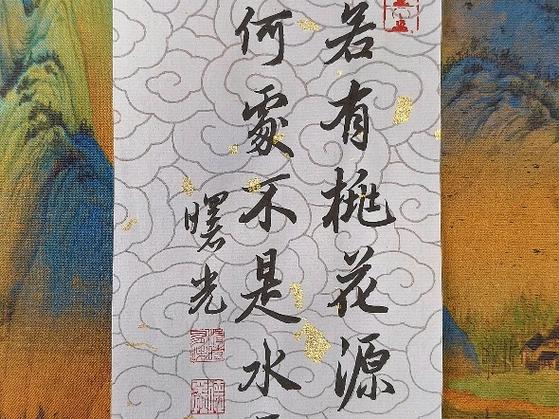 若有桃花源
何處不是水
曙光